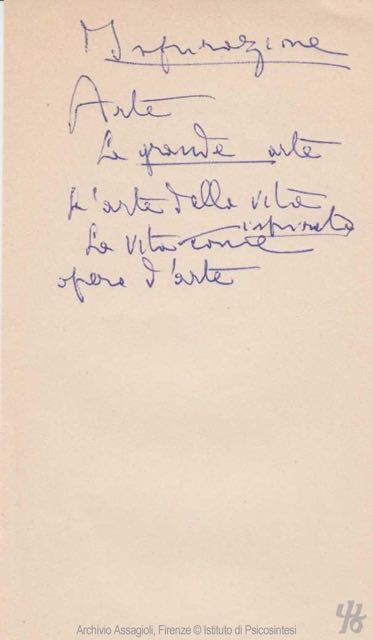 Ispirazione
Arte
La grande arte
L'arte della vita
ispirata
La vita come
opera d'arte
Archivio Assagioli, Firenze © Istituto di Psicosintesi